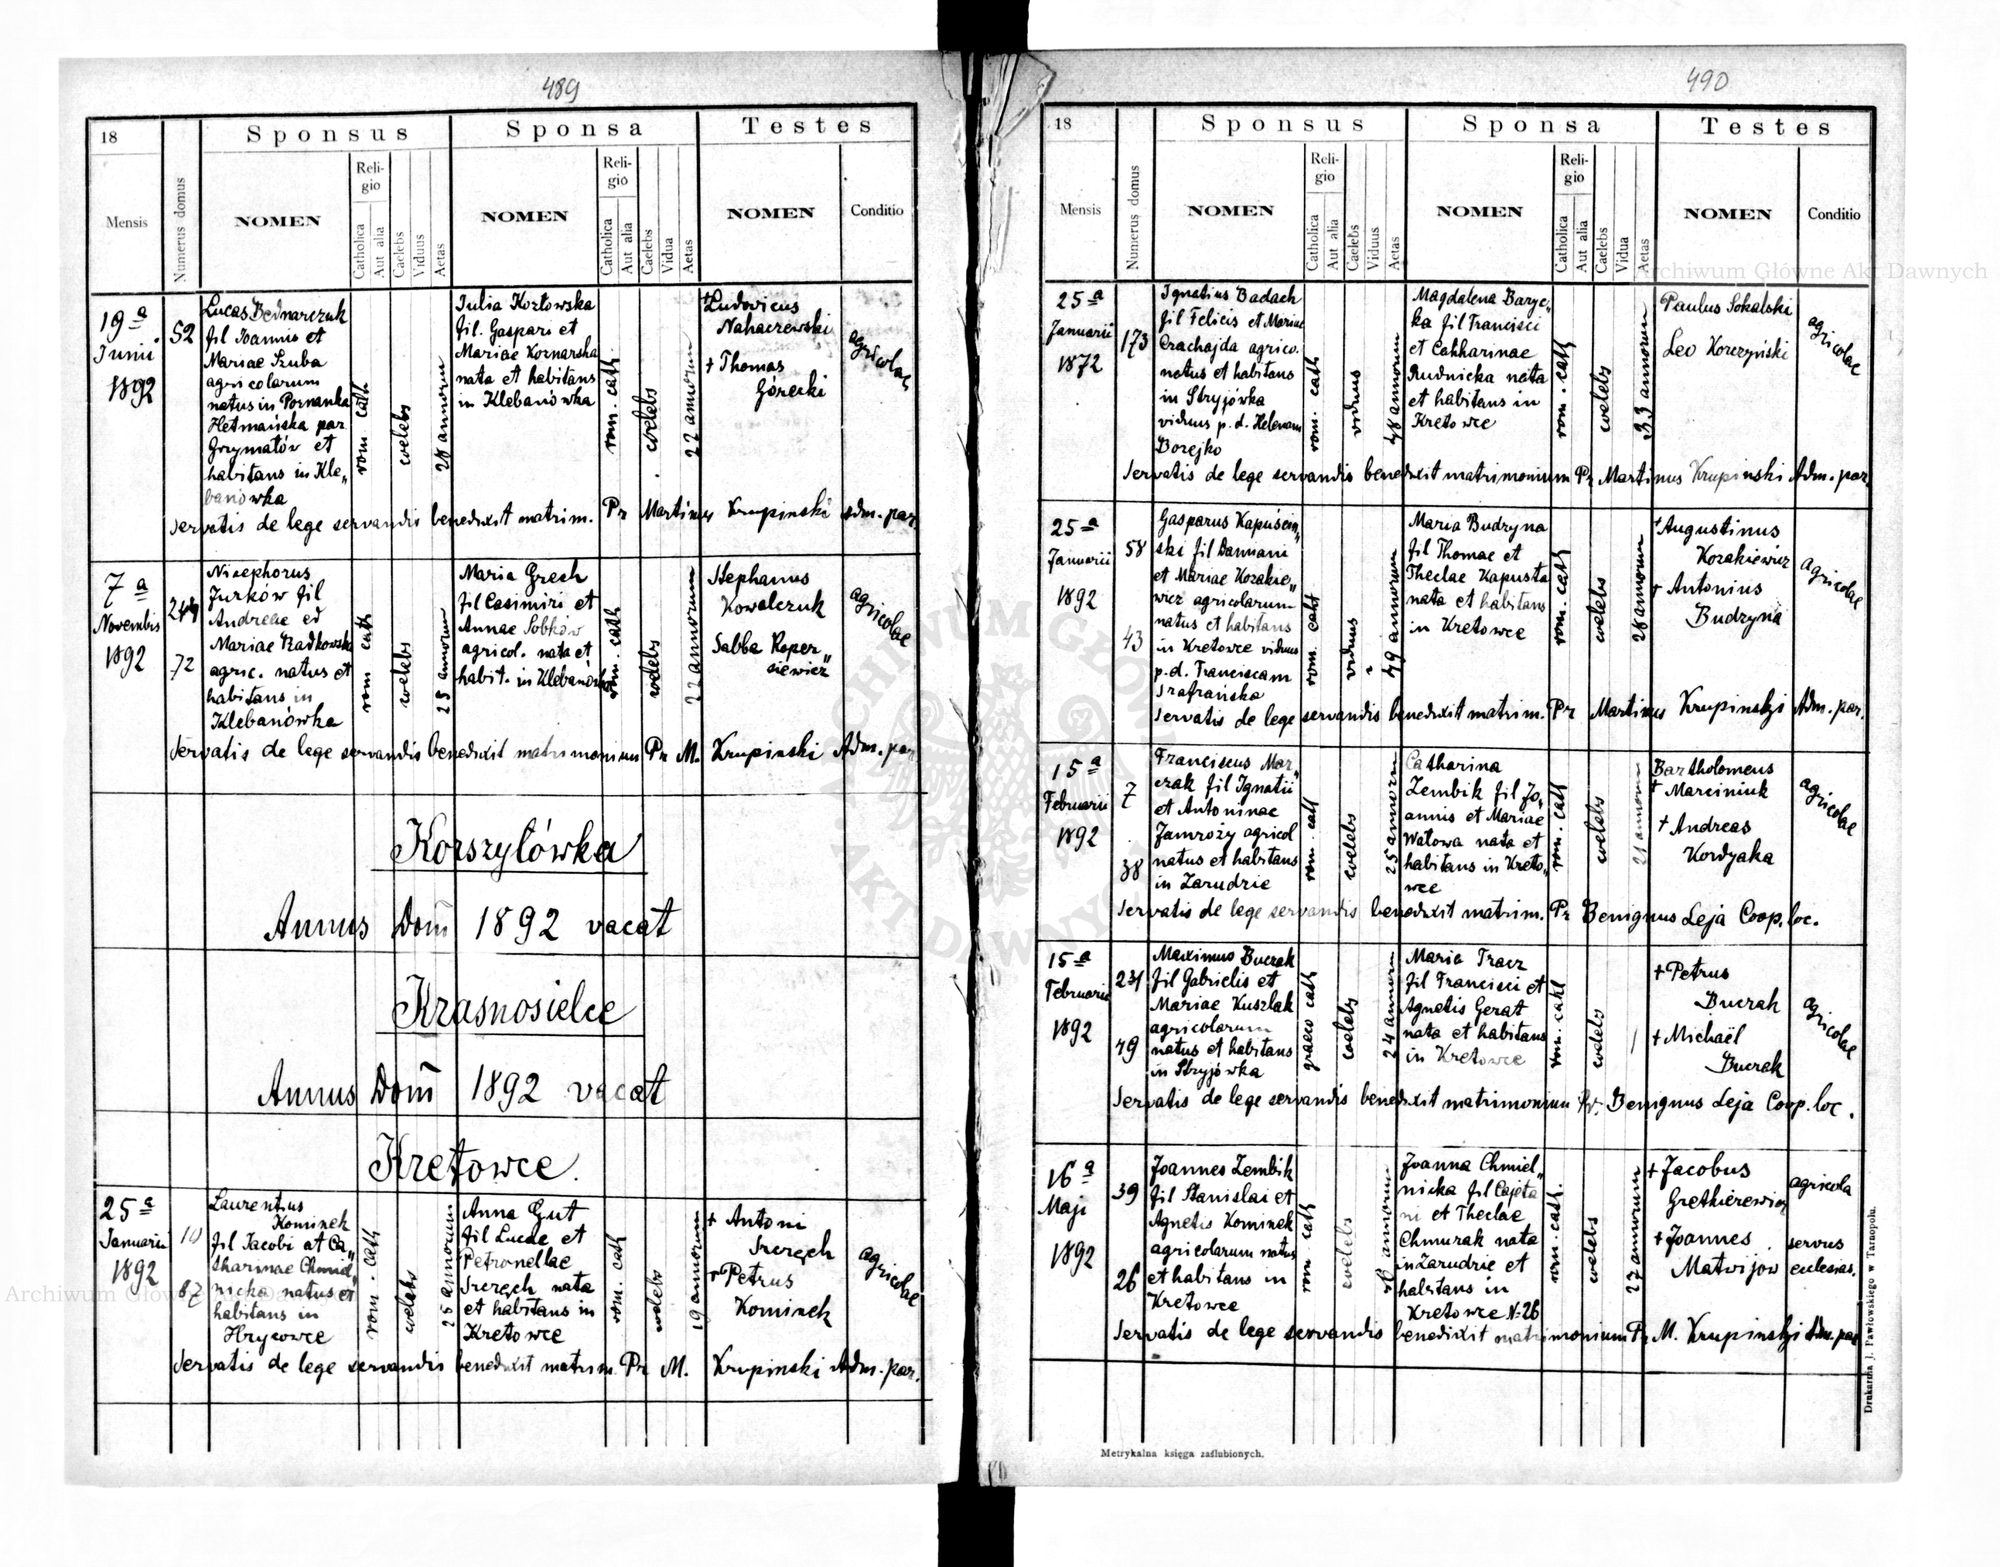 489
18
Mensis
Numerus domus
Sponsus
NOMEN
Religio
Catholica
Aut alia
Caelebs
Viduus
Aetas
Sponsa
NOMEN
Religio
Catholica
Aut alia
Caelebs
Vidua
Aetas
Testes
NOMEN
Conditio
19a
Junii
1892
52
Lucas Bednarczuk
fil Joannis et
Mariae Szuba
agricolarum
natus in Poznanka
Hetmańska par
Grzymałów et
habitans in Kle„
banówka
rom. cath
coelebs
28 annorum
Julia Kozłowska
fil. Gaspari et
Mariae Koznarska
nata et habitans
in Klebanówka
rom. cath
coelebs
22 annorum
+Ludovicus
Nahaczewski
+ Thomas
Górecki
agricolae
Servatis de lege servandis benedixit matrim. Pr Martinus Krupinski adm. par.
7a
Novembis
1892
244
72
Nicephorus
Jurków fil
Andreae et
Mariae Radkowska
agric. natus et
habitans in
Klebanówka
rom cath
coelebs
25 annorum
Maria Grech
fil Casimiri et
Annae Sobków
agricol. nata et
habit. in Klebanówka
rom. cath
coelebs
22 annorum
Stephanus
Kowalczuk
Sabba Koper„
siewicz
agricolae
Servatis de lege servandis benedixit matrimonium Pr M. Krupinski Adm. par
Korszyłówka
Annus Dom 1892 vacat
Krasnosielce
Annus Dom 1892 vacat
Kretowce.
25a
Januarii
1892
10
87
Laurentius
Kominek
fil Jacobi at Ca„
tharinae Chmiel„
nicka natus et
habitans in
Hrycowce
rom. cath
coelebs
25 annorum
Anna Gut
fil Lucae et
Petronellae
Szczęch nata
et habitans in
Kretowce
rom. cath
coelebs
19 annorum
+ Antoni
Szczęch
+ Petrus
Kominek
agricolae
Servatis de lege servandis benedixit matrim Pr M. Krupinski Adm. par.
490
18
Mensis
Numerus domus
Sponsus
NOMEN
Religio
Catholica
Aut alia
Caelebs
Viduus
Aetas
Sponsa
NOMEN
Religio
Catholica
Aut alia
Caelebs
Vidua
Aetas
Testes
NOMEN
Conditio
25a
Januarii
1872
173
Ignatius Badach
fil Felicis et Mariae
Crachajda agrico.
natus et habitans
in Stryjówka
viduus p. d. Helenam
Borejko
rom. cath
viduus
48 annorum
Magdalena Baryc„
ka fil Francisci
et Cahharinae
Rudnicka nata
et habitans in
Kretowce
rom. cath
coelebs
33 annorum
Paulus Sokalski
Leo Korczyński
agricolae
Servatis de lege servandis benedixit matrimonium Pr Martinus Krupinski Adm. par.
25a
Januarii
1892
58
43
Gasparus Kapuściń„
ski fil Damiani
et Mariae Kozakie„
wicz agricolarum
natus et habitans
in Kretowce viduus
p. d. Franciscam
Szafrańska
rom. cath
viduus
49 annorum
Maria Budzyna
fil Thomae et
Theclae Kapusta
nata et habitans
in Kretowce
rom. cath
coelebs
28 annorum
+Augustinus
Kozakiewicz
+ Antonius
Budzyna
agricolae
Servatis de lege servandis benedixit matrim. Pr Martinus Krupinski Adm. par.
15a
Februarii
1892
7
38
Franciscus Mar„
czak fil Ignatii
et Antoninae
Jamroży agricol
natus et habitans
in Zarudzie
rom. cath
coelebs
25 annorum
Catharina
Zembik fil Jo„
annis et Mariae
Watowa nata et
habitans in Kreto„
wce
rom. cath
coelebs
21 annorum
Bartholomeus
+ Marciniuk
+ Andreas
Kordyaka
agricolae
Servatis de lege servandis benedixit matrim. Pr Benignus Leja Coop. loc.
15a
Februarii
1892
231
49
Maximus Buczak
fil Gabrielis et
Mariae Kuszlak
agricolarum
natus et habitans
in Stryjówka
graeco cath
coelebs
24 annorum
Maria Tracz
fil Francisci et
Agnetis Gerat
nata et habitans
in Kretowce
rom. cath
coelebs
+ Petrus
Buczak
+ Michaël
Buczak
agricolae
Servatis de lege servandis benedixit matrimonium Pr. Benignus Leja Coop. loc.
16a
Maji
1892
39
26
Joannes Zembik
fil Stanislai et
Agnetis Kominek
agricolarum natus
et habitans in
Kretowce
rom. cath
coelebs
annorum
Joanna Chmiel„
nicka fil Cajeta
ni et Theclae
Chmurak nata
in Zarudzie et
habitans in
Kretowce N. 26
rom. cath.
coelebs
27 annorum
+ Jacobus
Gretkierewicz
+ Joannes
Matwijow
agricola
servus
ecclesias.
Servatis de lege servandis benedixit matrimonium Pr M. Krupinski Adm. par
Metrykalna księga zaślubionych.
Drukarnia J. Pawłowskiego w Tarnopolu.
Archiwum Główne Akt Dawnych
Archiwum Główne Akt Dawnych
ARCHIWUM GŁÓWNE AKT DAWNYCH